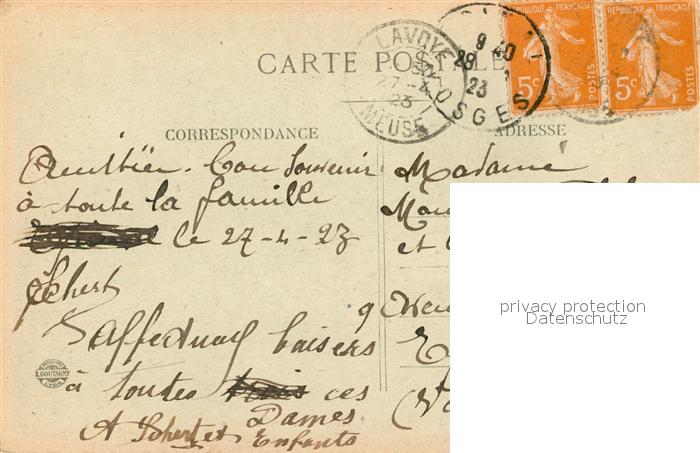 CARTE POSTALE
LAVOYE
27-4
23
MEUSE
9 40
28
23
VOSGES
RÉPUBLIQUE FRANÇAISE
5c
POSTES
RÉPUBLIQUE FRANÇAISE
5c
POSTES
CORRESPONDANCE
Bon Souvenir
à toute la famille
le 27-4-23
Schert
Affectueux baisers
à toutes ces
Dames
A Schert et Enfants
ADRESSE
Madame
et
9
privacy protection
Datenschutz
GOUTAGNY
LYON